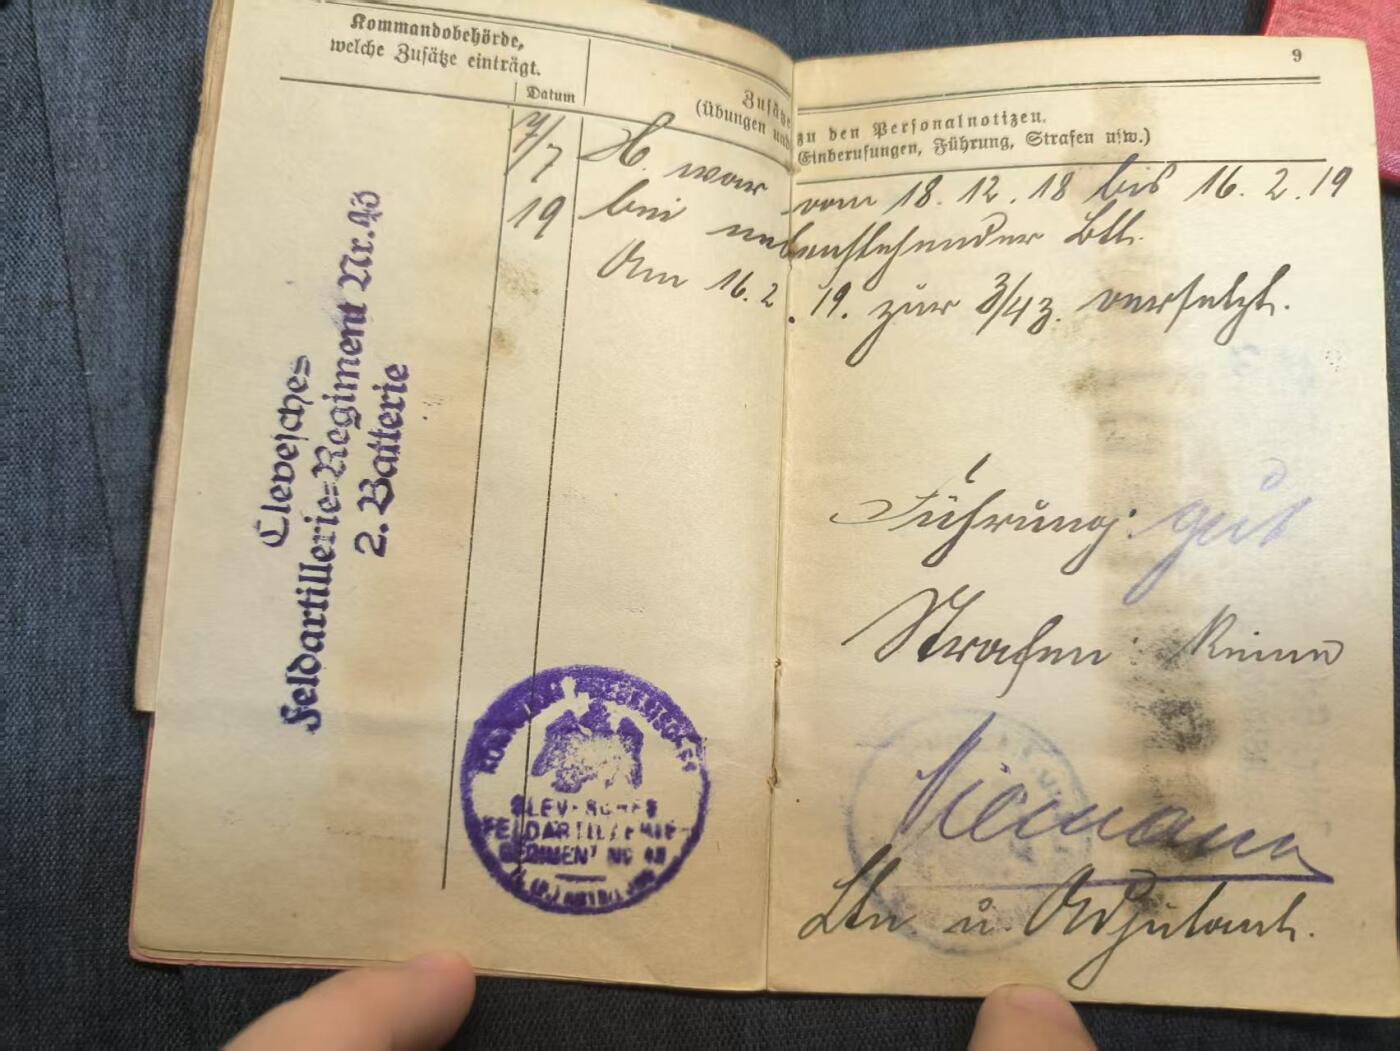 Kommandobehörde,
welche Zusätze einträgt.
Datum
Zusätze
(Übungen und
9
zu den Personalnotizen.
Einberufungen, Führung, Strafen usw.)
7/7
19
H. war vom 18.12.18 bis 16.2.19
bei nebenstehender Btt.
Am 16.2.19. zur 3/43. versetzt.
Clevesches
Feldartillerie=Regiment Nr. 43
2. Batterie
Führung: gut
Strafen: Keine
CLEVESCHES
FELDARTILLERIE-
REGIMENT No 43
Niemann
Ltn. u. Adjutant.